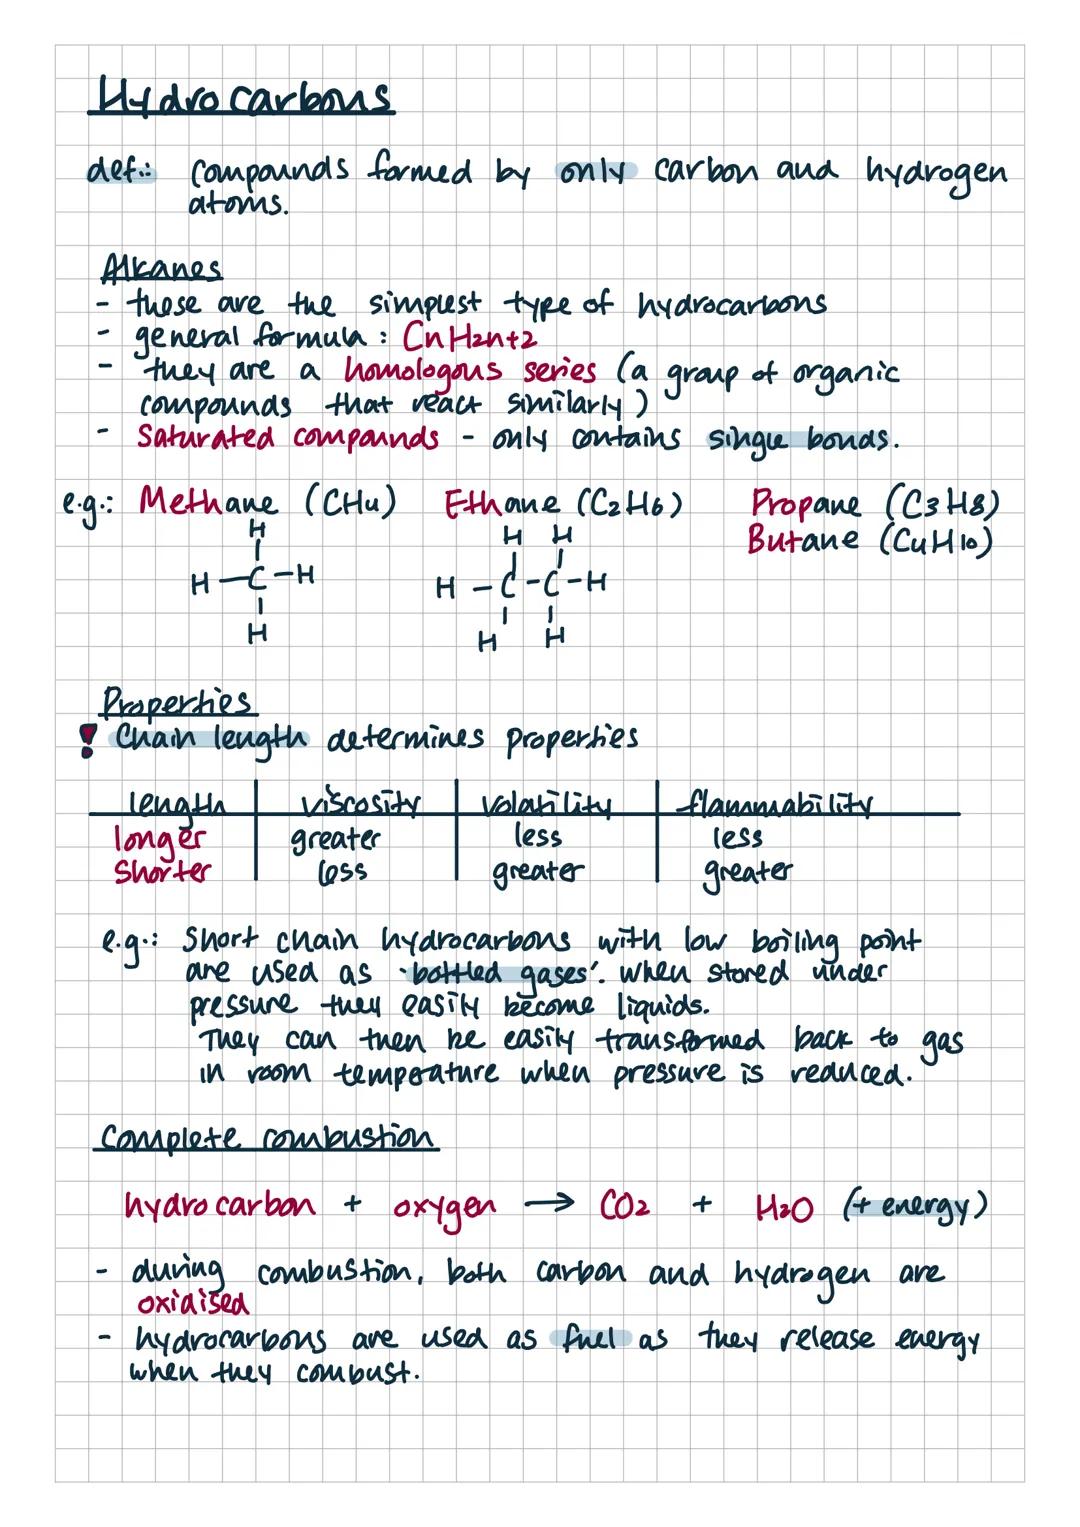 Hydrocarbons
def.: compounds formed by only carbon and hydrogen
atoms.
Alkanes
- these are the simplest type of hydrocarbons
- general formula : CnH2n+2
- they are a homologous series (a group of organic
compounds that react similarly)
- Saturated compounds - only contains single bonds.
e.g.: Methane (CH4) Ethane (C2H6) Propane (C3H8)
Butane (C4H10)
H H H
H - C - H H - C - C - H
H H H
Properties
! Chain length determines properties
length viscosity volatility flammability
longer greater less less
Shorter less greater greater
e.g.: Short chain hydrocarbons with low boiling point
are used as 'bottled gases'. when stored under
pressure they easily become liquids.
They can then be easily transformed back to gas
in room temperature when pressure is reduced.
Complete combustion
hydrocarbon + oxygen → CO2 + H2O (+ energy)
- during combustion, both carbon and hydrogen are
oxidised
- hydrocarbons are used as fuel as they release energy
when they combust.